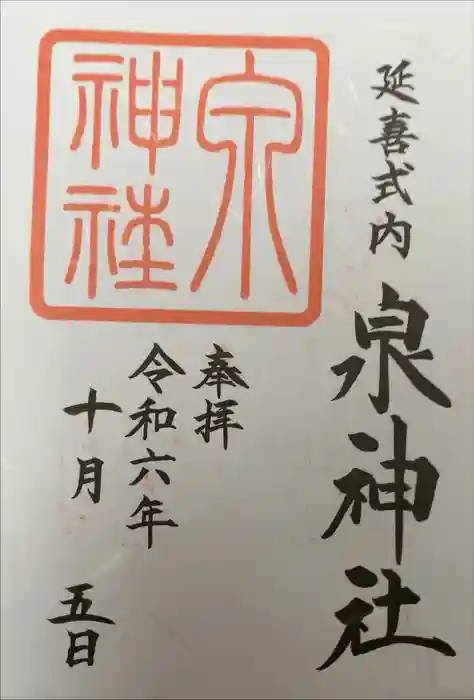 延喜式内 泉神社
奉拝
令和六年
十月 五日
泉
神社